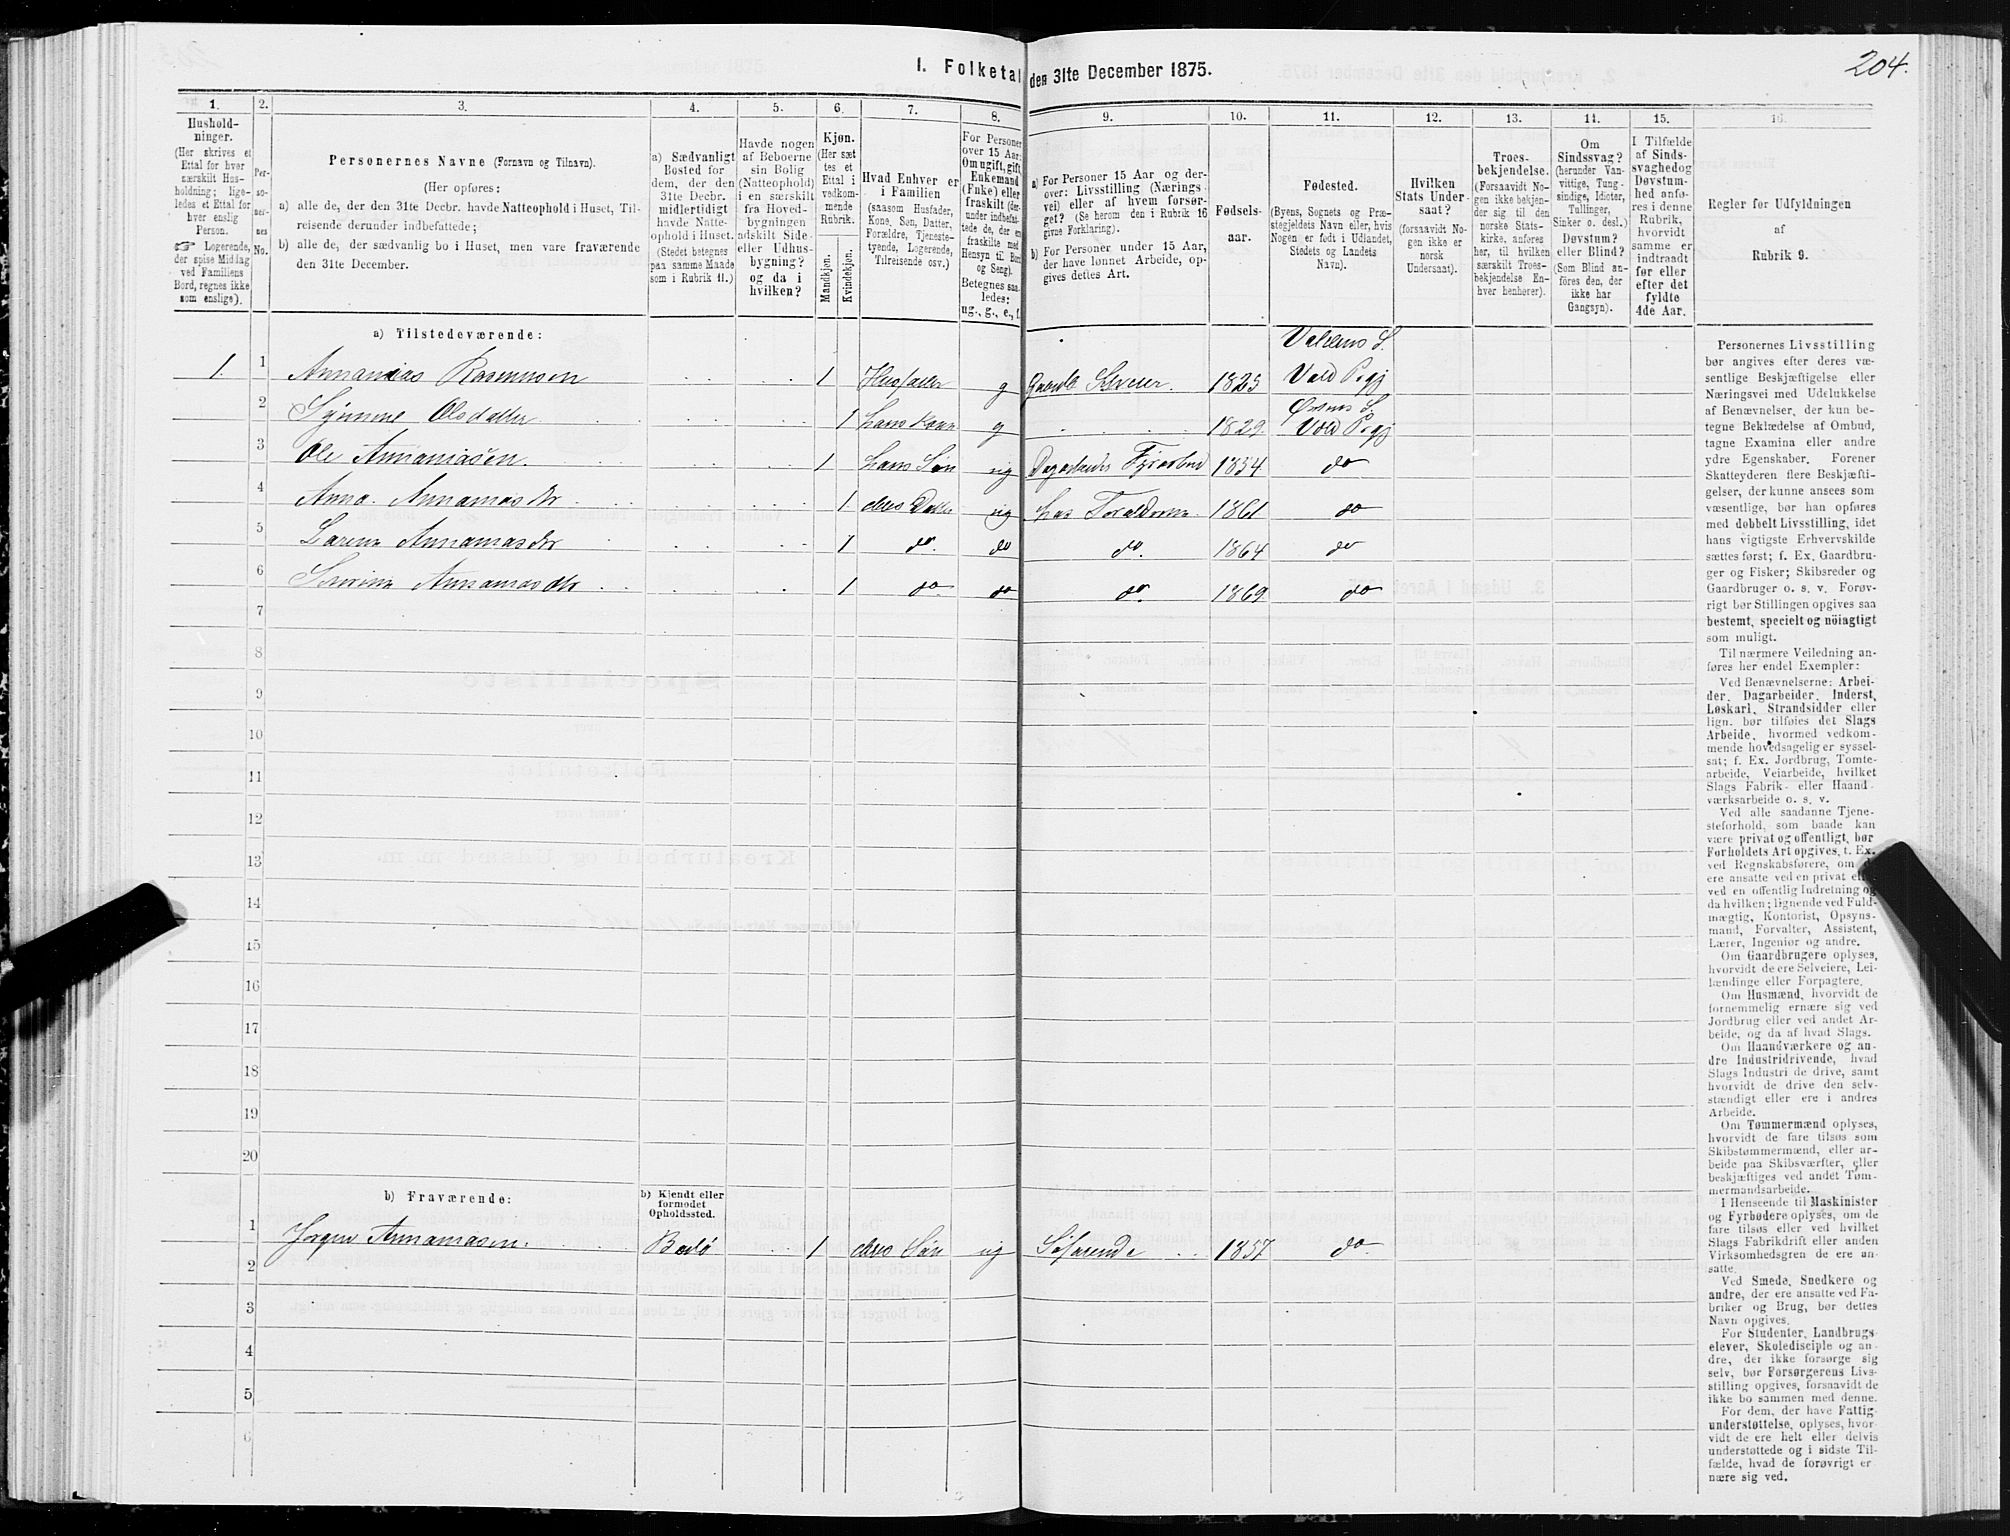 204.
I. Folketal den 31te December 1875.
1. 2. 3. 4. 5. 6. 7. 8. 9. 10. 11. 12. 13. 14. 15. 16.
Hushold-
ninger.
(Her skrives et
Ettal for hver
særskilt Hus-
holdning; lige-
ledes et Ettal for
hver enslig
Person.
☞ Logerende,
der spise Middag
ved Familiens
Bord, regnes ikke
som enslige).
Per-
so-
ner-
nes
No.
Personernes Navne (Fornavn og Tilnavn).
(Her opføres:
a) alle de, der den 31te Decbr. havde Natteophold i Huset, Til-
reisende derunder indbefattede;
b) alle de, der sædvanlig bo i Huset, men vare fraværende
den 31te December.
a) Sædvanligt
Bosted for
dem, der den
31te Decbr.
midlertidigt
havde Natte-
ophold i Huset.
(Stedet betegnes
paa samme Maade
som i Rubrik 11.)
Havde nogen
af Beboerne
sin Bolig
(Natteophold)
i en særskilt
fra Hoved-
bygningen
adskilt Side-
eller Udhus-
bygning?
og da i
hvilken?
Kjøn.
(Her sæt-
tes et
Ettal i
vedkom-
mende
Rubrik.
Mandkjøn.
Kvindekjøn.
Hvad Enhver er
i Familien
(saasom Husfader,
Kone, Søn, Datter,
Forældre, Tjeneste-
tyende, Logerende,
Tilreisende osv.)
For Personer
over 15 Aar:
Om ugift, gift,
Enkemand
(Enke) eller
fraskilt (der-
under indbefat-
tede de, der ere
fraskilte med
Hensyn til Bord
og Seng).
Betegnes saa-
ledes:
ug., g., e., f.
a) For Personer 15 Aar og der-
over: Livsstilling (Nærings-
vei) eller af hvem forsør-
get? (Se herom den i Rubrik 16
givne Forklaring).
b) For Personer under 15 Aar,
der have lønnet Arbeide, op-
gives dettes Art.
Fødsels-
aar.
Fødested.
(Byens, Sognets og Præ-
stegjeldets Navn eller, hvis
Nogen er født i Udlandet,
Stedets og Landets
Navn).
Hvilken
Stats Under-
saat?
(forsaavidt No-
gen ikke er
norsk
Undersaat).
Troes-
bekjendelse.
(Forsaavidt No-
gen ikke bekjen-
der sig til den
norske Stats-
kirke, anføres
her, til hvilken
særskilt Troes-
bekjendelse En-
hver henhører).
Om
Sindssvag?
(herunder Van-
vittige, Tung-
sindige, Idioter,
Tullinger,
Sinker o. desl.)
Døvstum?
eller Blind?
(Som Blind an-
føres den, der
ikke har
Gangsyn).
I Tilfælde
af Sinds-
svaghed og
Døvstum-
hed anfø-
res i denne
Rubrik,
hvorvidt
samme er
indtraadt
før eller
efter det
fyldte
4de Aar.
Regler for Udfyldningen
af
Rubrik 9.
a) Tilstedeværende:
1. 1 Annanias Rasmussen 1 Husfader g Gaardb Selveier. 1825 S. Vold Pgj
2 Olsdatter 1 hans Kone g 1829 Vold Pgj
3 Ole Annaniasen. 1 hans Søn ug 1854 do
4 Anna. Annaniasdtr 1 deres Datter ug hos Forældrene 1861 do
5 Larene Annaniasdtr 1 do. do do. 1864 do
6 Annaniasdtr 1 do. do do. 1869. do
7
8
9
10
11
12
13
14
15
16
17
18
19
20
b) Fraværende:
b) Kjendt eller
formodet
Opholdssted.
1 Jørgen Annaniasen. Bodø 1 deres Søn ug Søfarende 1857 do.
2
3
4
5
6
Personernes Livsstilling
bør angives efter deres væ-
sentlige Beskjæftigelse eller
Næringsvei med Udelukkelse
af Benævnelser, der kun be-
tegne Beklædelse af Ombud,
tagne Examina eller andre
ydre Egenskaber. Forener
Skatteyderen flere Beskjæfti-
gelser, der kunne ansees som
væsentlige, bør han opføres
med dobbelt Livsstilling, idet
hans vigtigste Erhvervskilde
sættes først; f. Ex. Gaardbru-
ger og Fisker; Skibsreder og
Gaardbruger o. s. v. Forøv-
rigt bør Stillingen opgives saa
bestemt, specielt og nöiagtigt
som muligt.
Til nærmere Veiledning an-
føres her endel Exempler:
Ved Benævnelserne: Arbei-
der, Dagarbeider, Inderst,
Løskarl, Strandsidder eller
lign. bør tilføies det Slags
Arbeide, hvormed vedkom-
mende hovedsagelig er syssel-
sat; f. Ex. Jordbrug, Tomte-
arbeide, Veiarbeide, hvilket
Slags Fabrik- eller Haand-
værksarbeide o. s. v.
Ved alle saadanne Tjene-
steforhold, som baade kan
være privat og offentligt, bør
Forholdets Art opgives, t. Ex.
ved Regnskabsførere, om de
ere ansatte ved en privat eller
ved en offentlig Indretning og
da hvilken; lignende ved Fuld-
mægtig, Kontorist, Opsyns-
mand, Forvalter, Assistent,
Lærer, Ingeniør og andre.
Om Gaardbrugere oplyses,
hvorvidt de ere Selveiere, Lei-
lændinge eller Forpagtere.
Om Husmænd, hvorvidt de
fornemmelig ernære sig ved
Jordbrug eller ved andet Ar-
beide, og da af hvad Slags.
Om Haandværkere og an-
dre Industridrivende, hvad
Slags Industri de drive, samt
hvorvidt de drive den selv-
stændigt eller ere i andres
Arbeide.
Om Tømmermænd oplyses,
hvorvidt de fare tilsøs som
Skibstømmermænd, eller ar-
beide paa Skibsværfter, eller
beskjæftiges ved andet Töm-
mermandsarbeide.
I Henseende til Maskinister
og Fyrbødere oplyses, om de
fare tilsøs eller ved hvilket
Slags Fabrikdrift eller anden
Virksomhedsgren de ere an-
satte.
Ved Smede, Snedkere og
andre, der ere ansatte ved Fa-
briker og Brug, bør dettes
Navn opgives.
For Studenter, Landbrugs-
elever, Skoledisciple og an-
dre, der ikke forsørge sig
selv, bør Forsørgerens Livs-
stilling opgives, forsaavidt de
ikke bo sammen med denne.
For dem, der have Fattig-
understøttelse, oplyses, hvor-
vidt de ere helt eller delvis
understøttede og i sidste Til-
fælde, hvad de forøvrigt er-
nære sig ved.